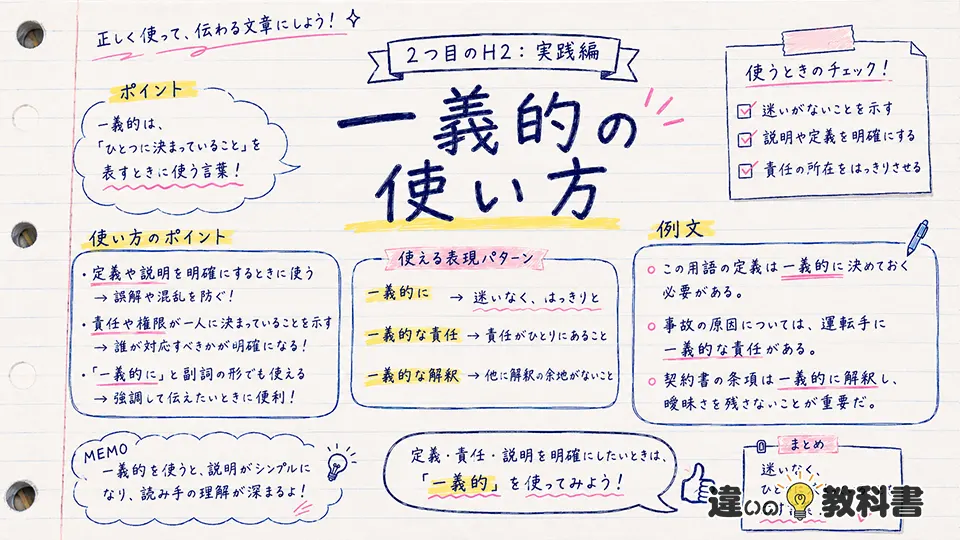 正しく使って、伝わる文章にしよう！
2つ目のH2：実践編
一義的の
使い方
ポイント
一義的は、
「ひとつに決まっていること」を
表すときに使う言葉！
使うときのチェック！
迷いがないことを示す
説明や定義を明確にする
責任の所在をはっきりさせる
使い方のポイント
・定義や説明を明確にするときに使う
→ 誤解や混乱を防ぐ！
・責任や権限が一人に決まっていることを示す
→ 誰が対応すべきかが明確になる！
・「一義的に」と副詞の形でも使える
→ 強調して伝えたいときに便利！
使える表現パターン
一義的に → 迷いなく、はっきりと
一義的な責任 → 責任がひとりにあること
一義的な解釈 → 他に解釈の余地がないこと
例文
この用語の定義は一義的に決めておく
必要がある。
事故の原因については、運転手に
一義的な責任がある。
契約書の条項は一義的に解釈し、
曖昧さを残さないことが重要だ。
MEMO
一義的を使うと、説明がシンプルに
なり、読み手の理解が深まるよ！
定義・責任・説明を明確にしたいときは、
「一義的」を使ってみよう！
まとめ
迷いなく、
ひと
違いの教科書